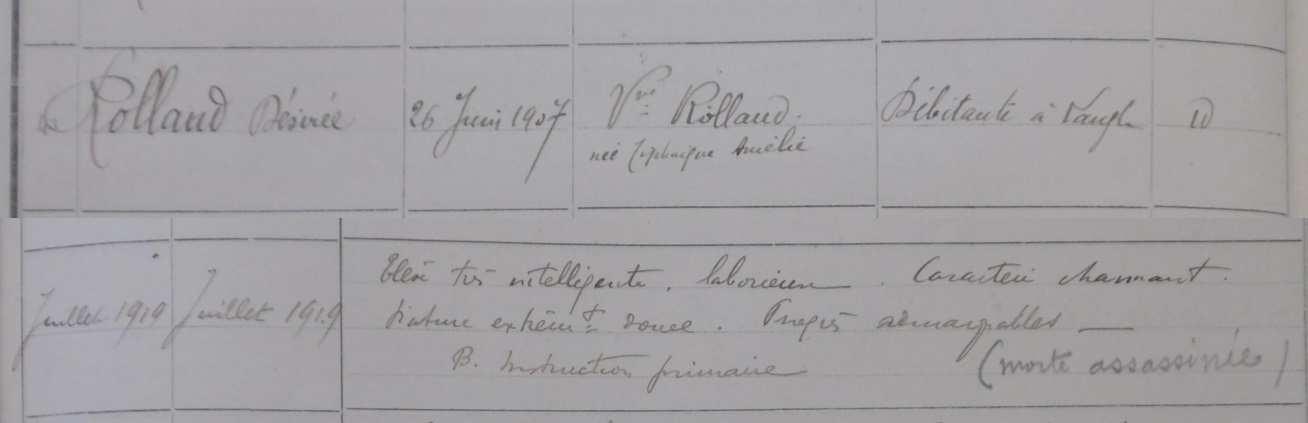 Rolland Désirée
26 Juin 1907
Vve Rolland.
née Amélie
Débitante à
Id
Juillet 1919
Juillet 1919
Elève très intelligente, laborieuse. Caractère charmant.
Nature extrêmt douce. Progrès remarquables —
B. Instruction primaire
(morte assassinée)